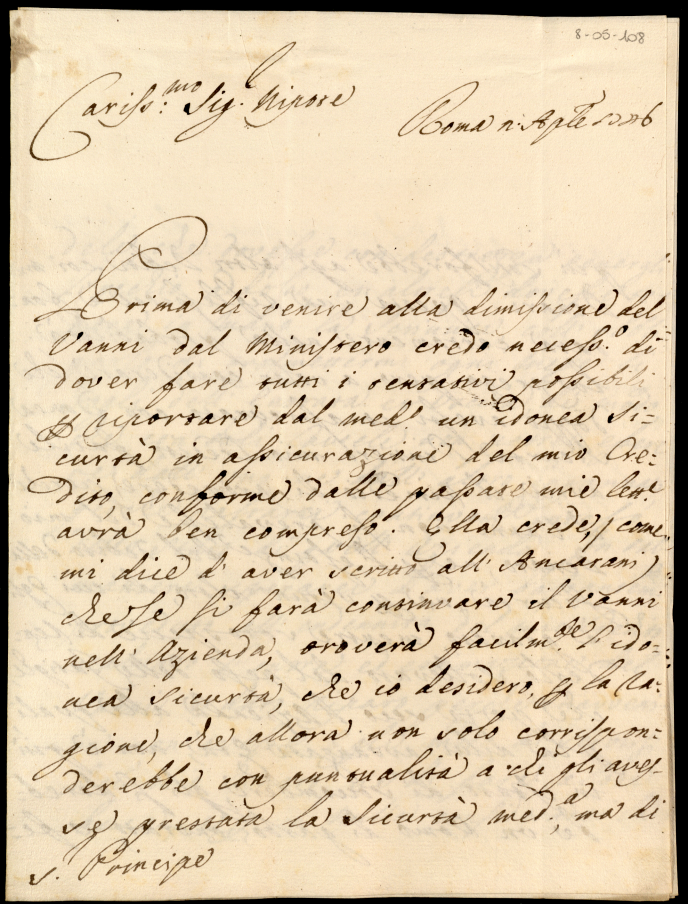 8-05-108
Cariss.mo Sig.r Nipote
Roma Aple
Prima di venire alla dimissione del
Vanni dal Ministero credo necess.o di
dover fare tutti i tentativi possibili
p riportare dal med.o un idonea si=
curtà in assicurazione del mio Cre=
dito, conforme dalle passate mie lett.e
avrà ben compreso. Ella crede, / come
mi dice d'aver scritto all'Ancarani /
che se si farà continuare il Vanni
nell'Azienda, troverà facilm.te l'ido=
nea sicurtà, che io desidero, p la ra=
gione, che allora non solo corrispon=
derebbe con puntualità a chi gli aves=
se prestata la sicurtà med.a, ma di
s. Principe